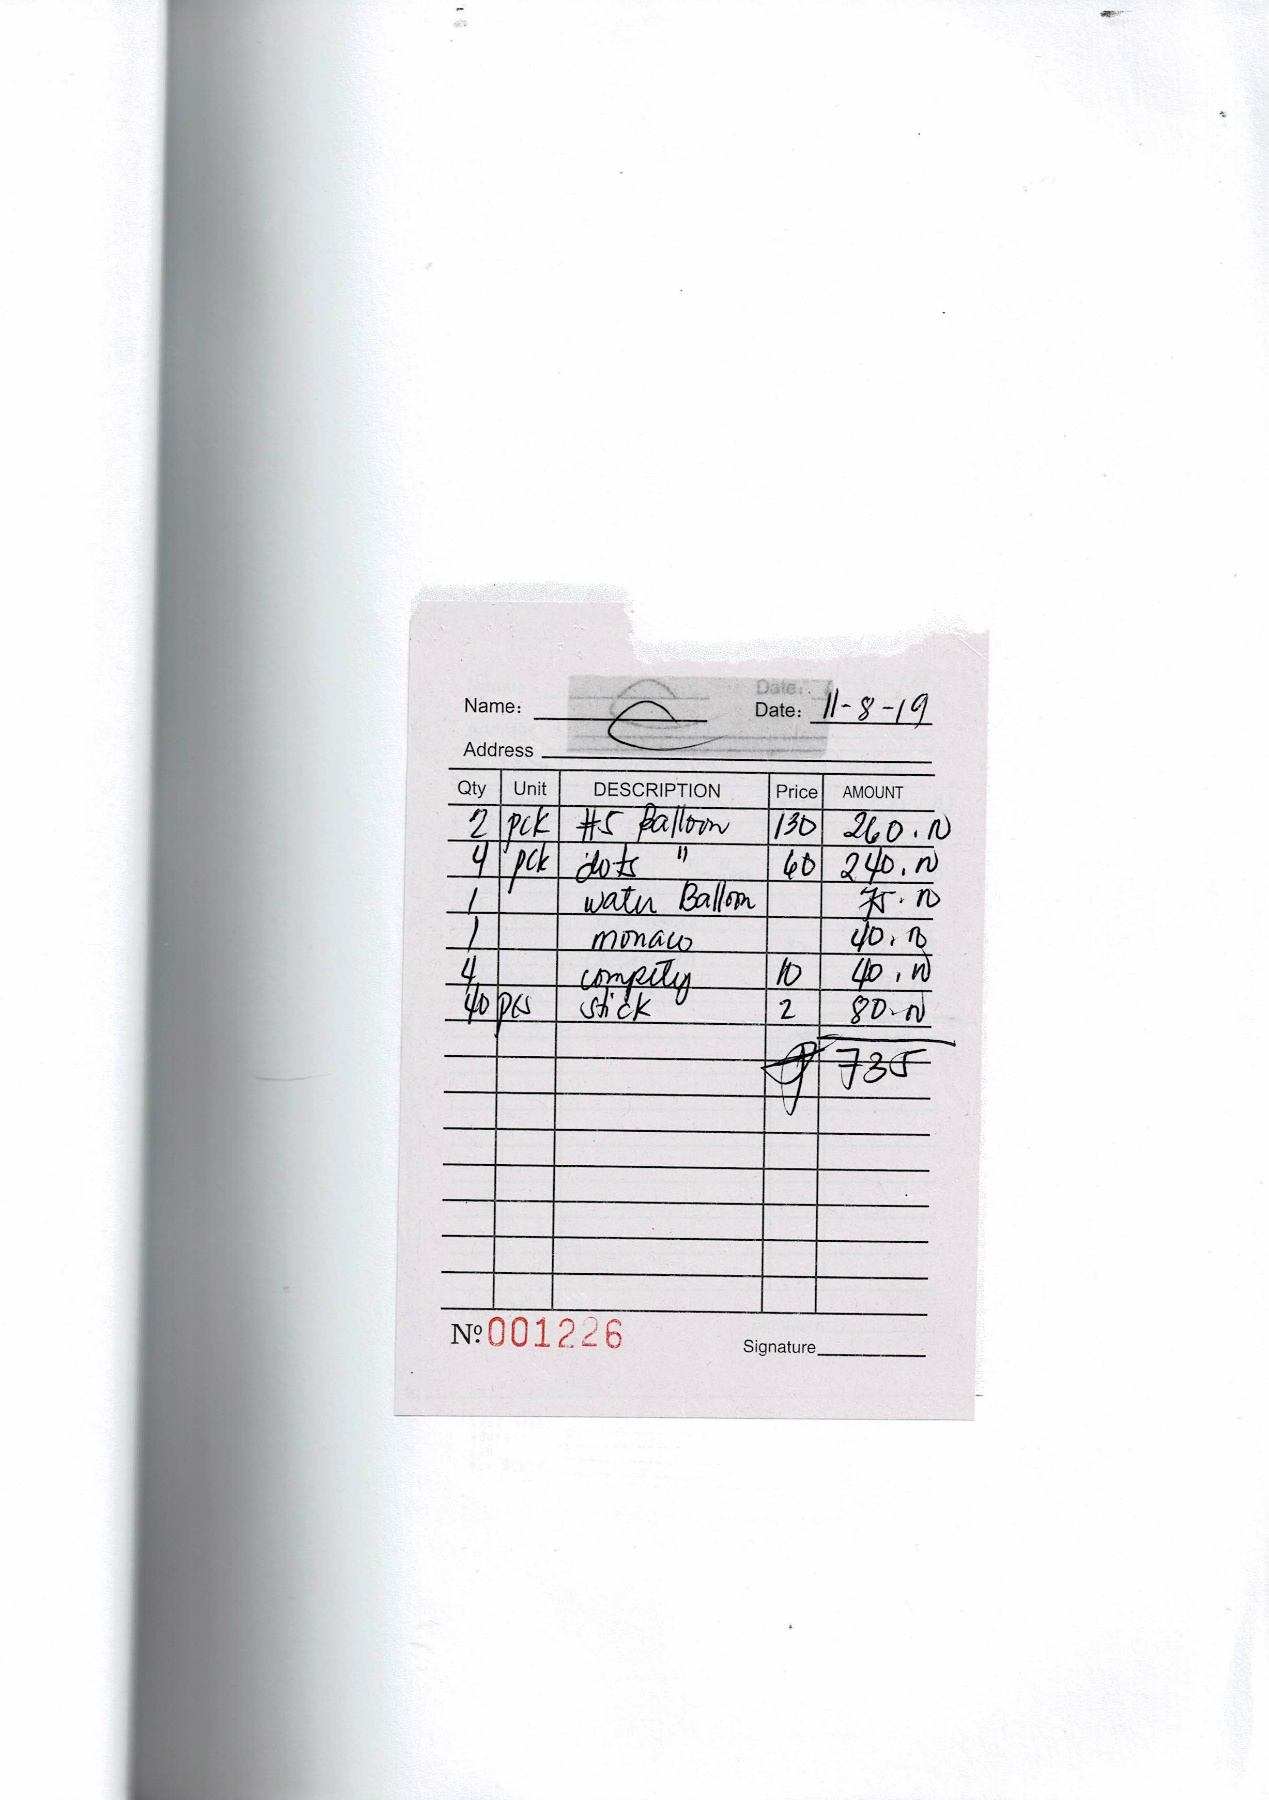 Date:
Name: Date: 11-8-19
Address
Qty Unit DESCRIPTION Price AMOUNT
2 pck #5 Balloon 130 260.00
4 pck dots " 60 240.00
1 water Balloon 75.00
1 monaco 40.00
4 compity 10 40.00
40 pcs stick 2 80.00
735
Nº 001226
Signature